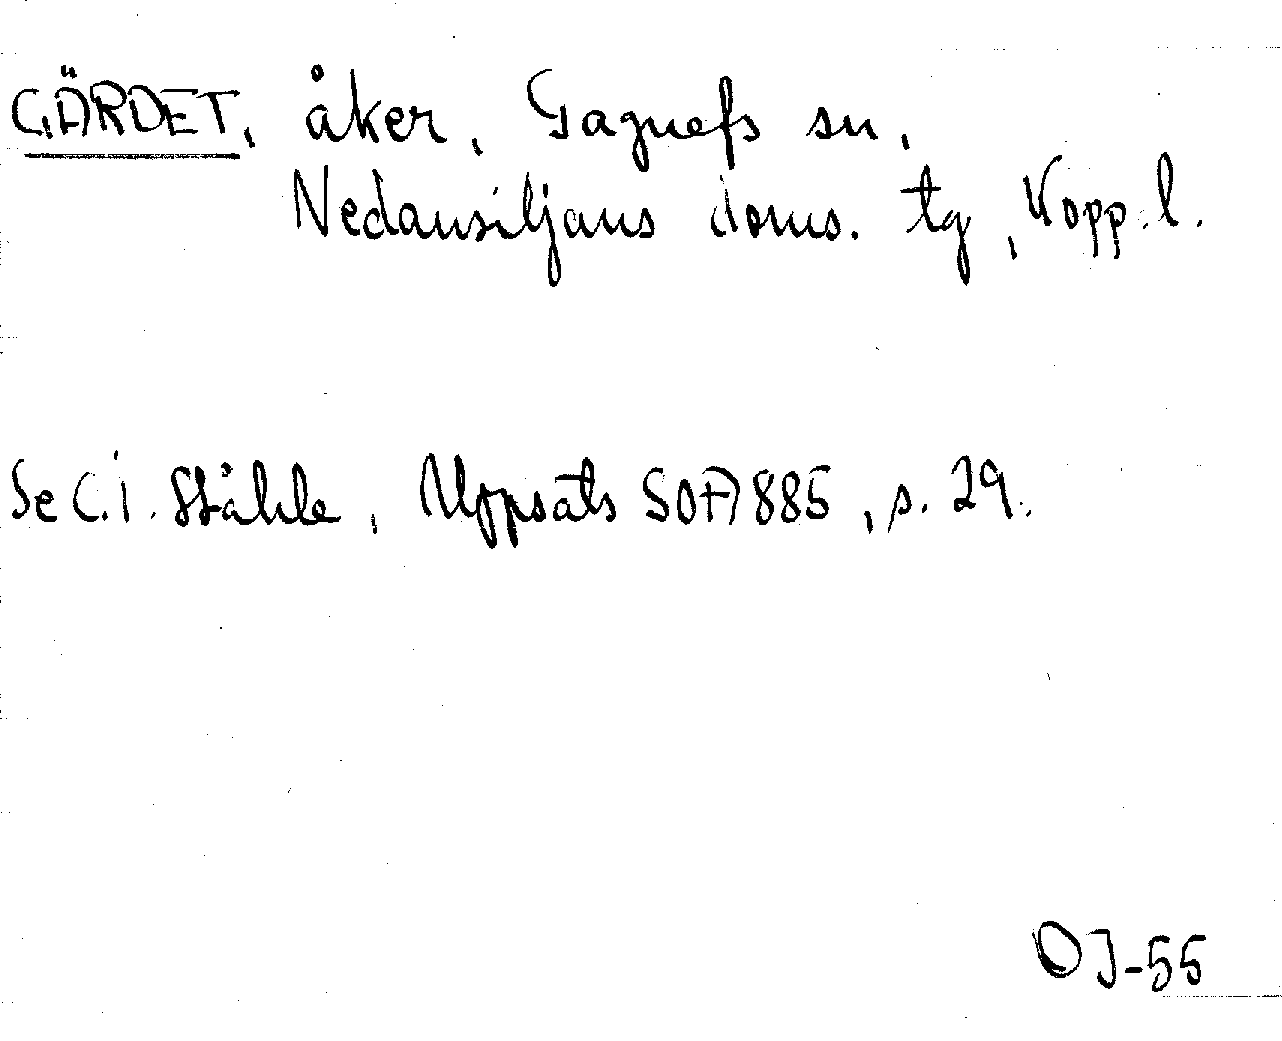 GÄRDET, åker, Gagnefs sn,
Nedansiljans doms. tg, Kopp. l.
Se C. I. Ståhle, Uppsats SOFA 885, s. 29.
OJ-55